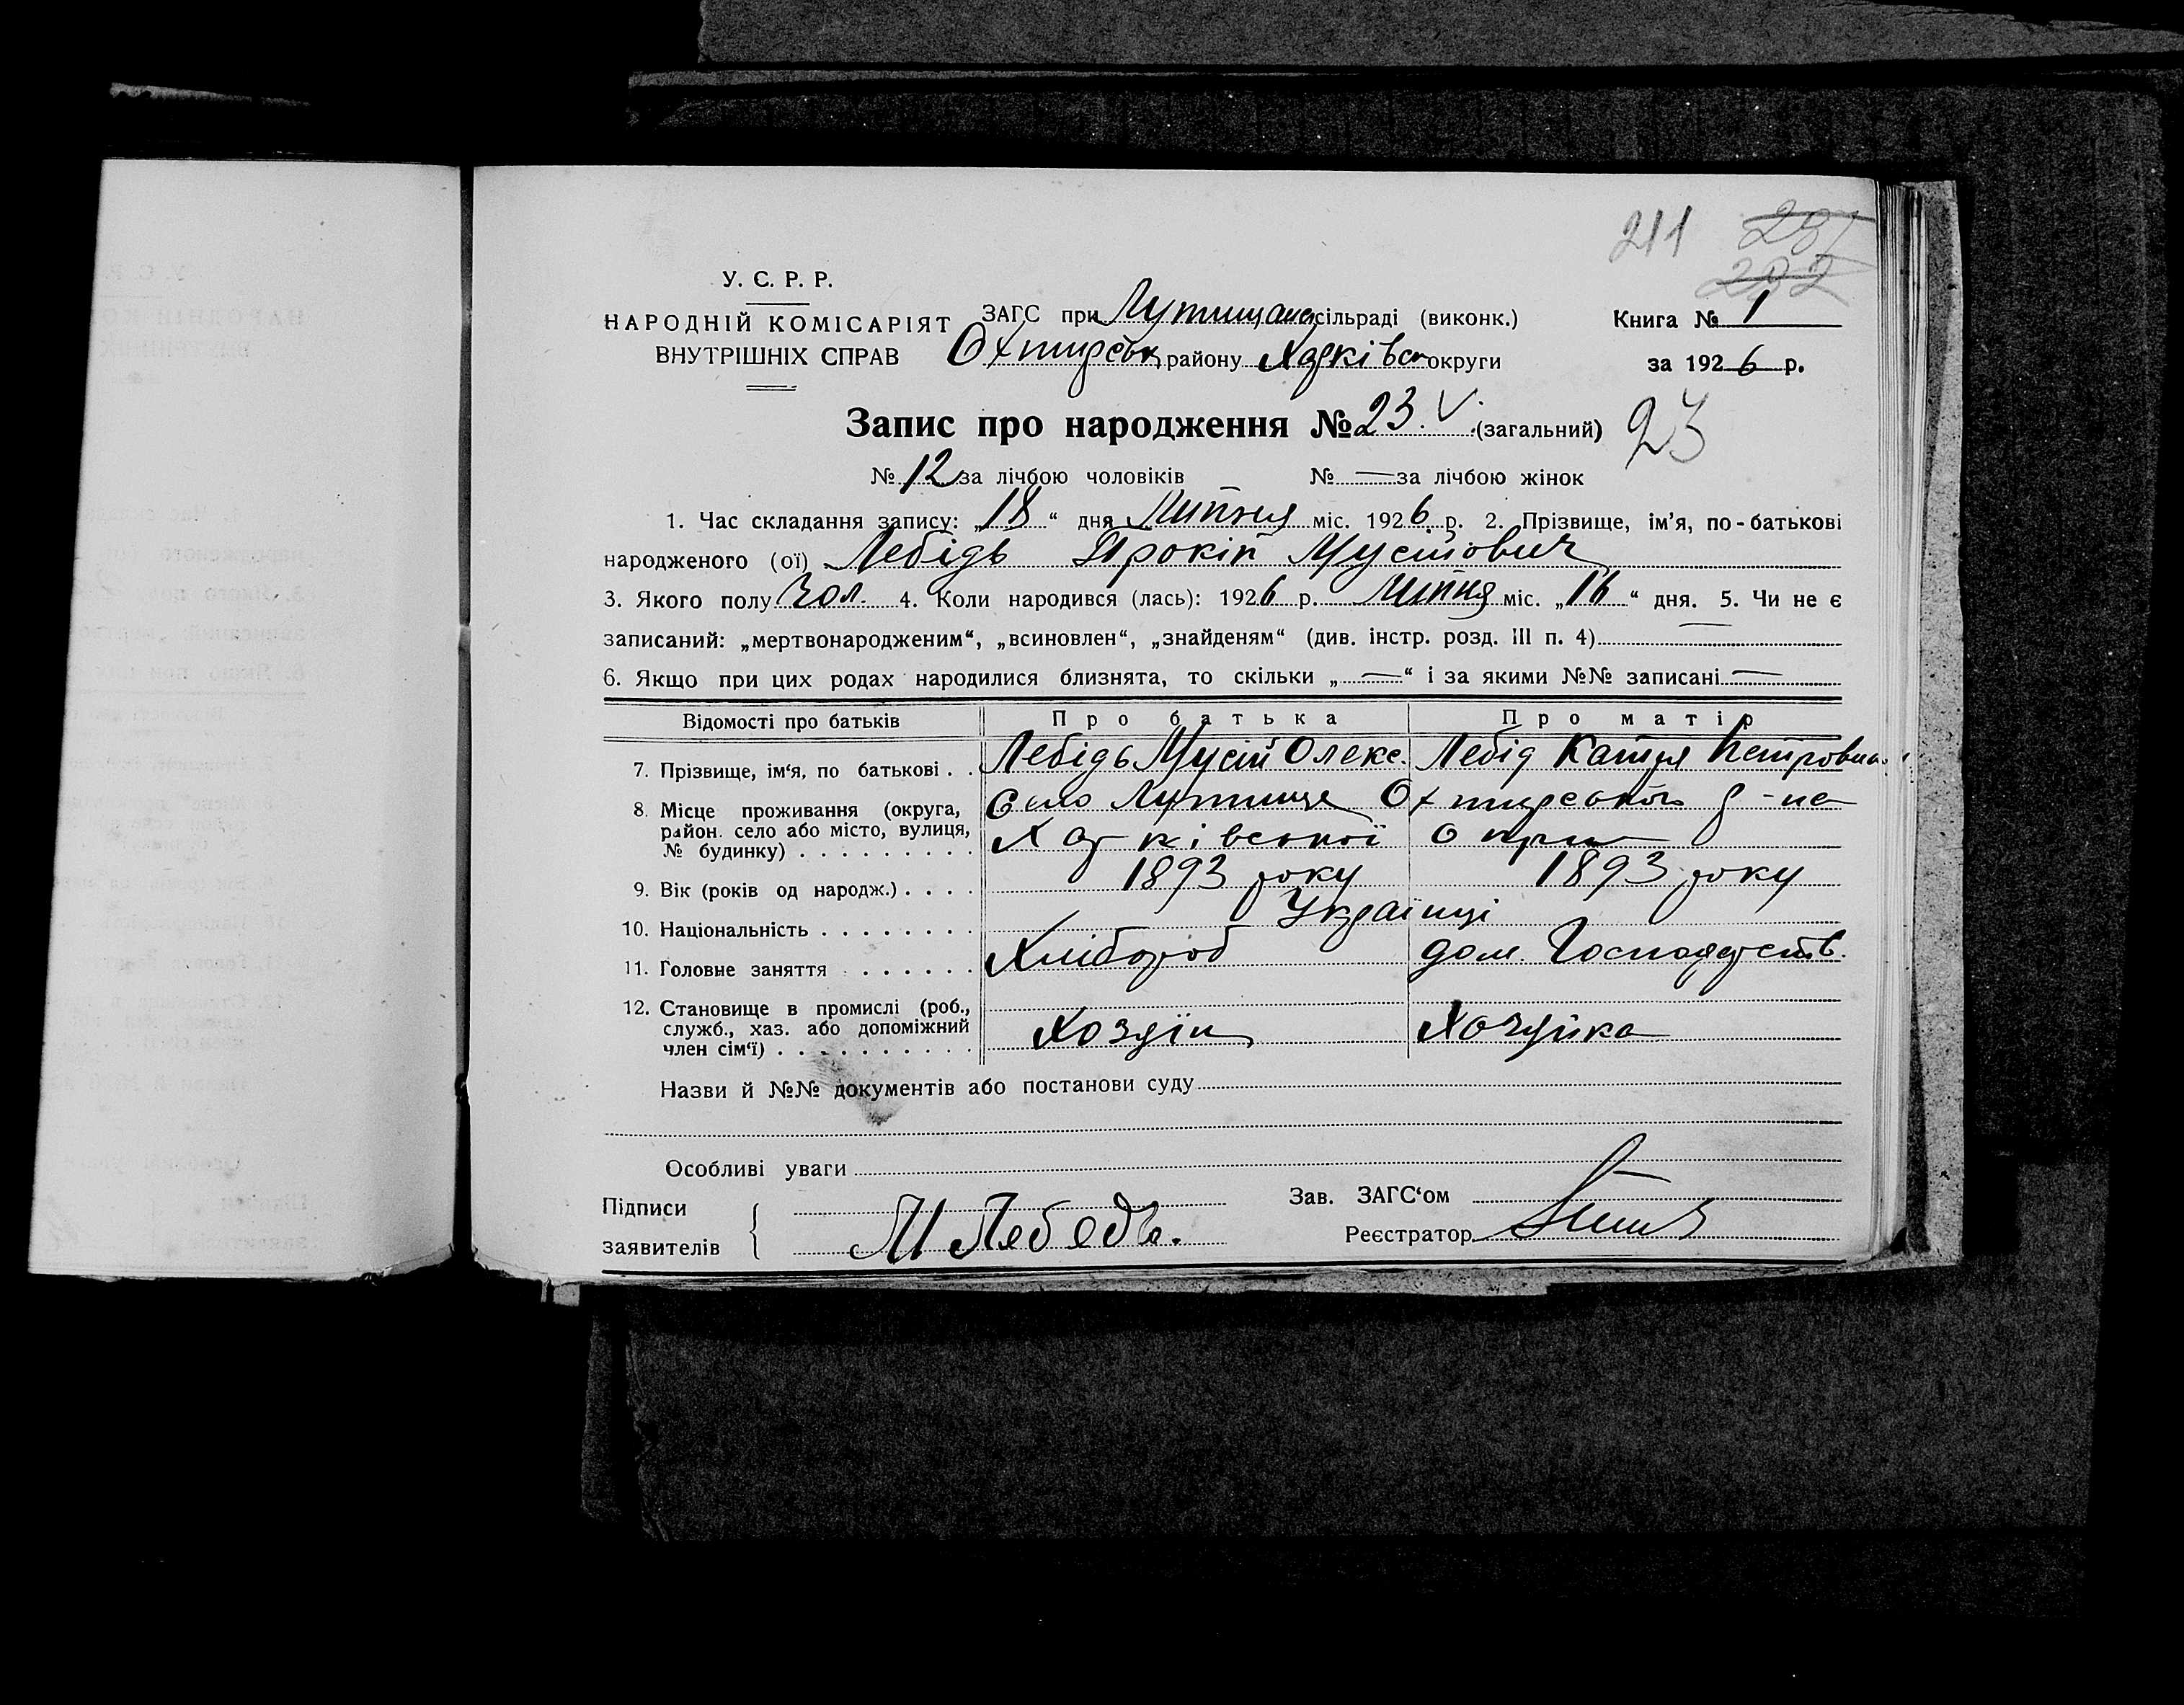 211 231
232
У. С. Р. Р.
НАРОДНІЙ КОМІСАРІЯТ
ВНУТРІШНІХ СПРАВ
ЗАГС при Лутищанс сільраді (виконк.)
Охтирськ району Харківск округи
Книга № 1
за 1926 р.
Запис про народження № 23. V. (загальний) 23
№ 12 за лічбою чоловіків № — за лічбою жінок
1. Час складання запису: „18“ дня Липня міс. 1926 р. 2. Прізвище, ім’я, по-батькові
народженого (ої) Лебідь Прокіп Мусійович
3. Якого полу чол. 4. Коли народився (лась): 1926 р. Липня міс. „16“ дня. 5. Чи не є
записаний: „мертвонародженим“, „всиновлен“, „знайденям“ (див. інстр. розд. III п. 4) —
6. Якщо при цих родах народилися близнята, то скільки „—“ і за якими №№ записані —
Відомості про батьків Про батька Про матір
7. Прізвище, ім‘я, по батькові . . Лебідь Мусій Олекс. Лебід Катря Петровна
8. Місце проживання (округа, район. село або місто, вулиця, № будинку) . . . . . . . . . Село Лутище Охтирського р-на
Харківської окри
9. Вік (років од народж.) . . . . 1893 року 1893 року
10. Національність . . . . . . . . Українці
11. Головне заняття . . . . . . . Хлібороб дом. Господарств.
12. Становище в промислі (роб., служб., хаз. або допоміжний член сім‘ї) . . . . . . . . . . Хозяїн Хозяйка
Назви й №№ документів або постанови суду
Особливі уваги
Підписи
заявителів
М Лебедь.
Зав. ЗАГС‘ом
Реєстратор